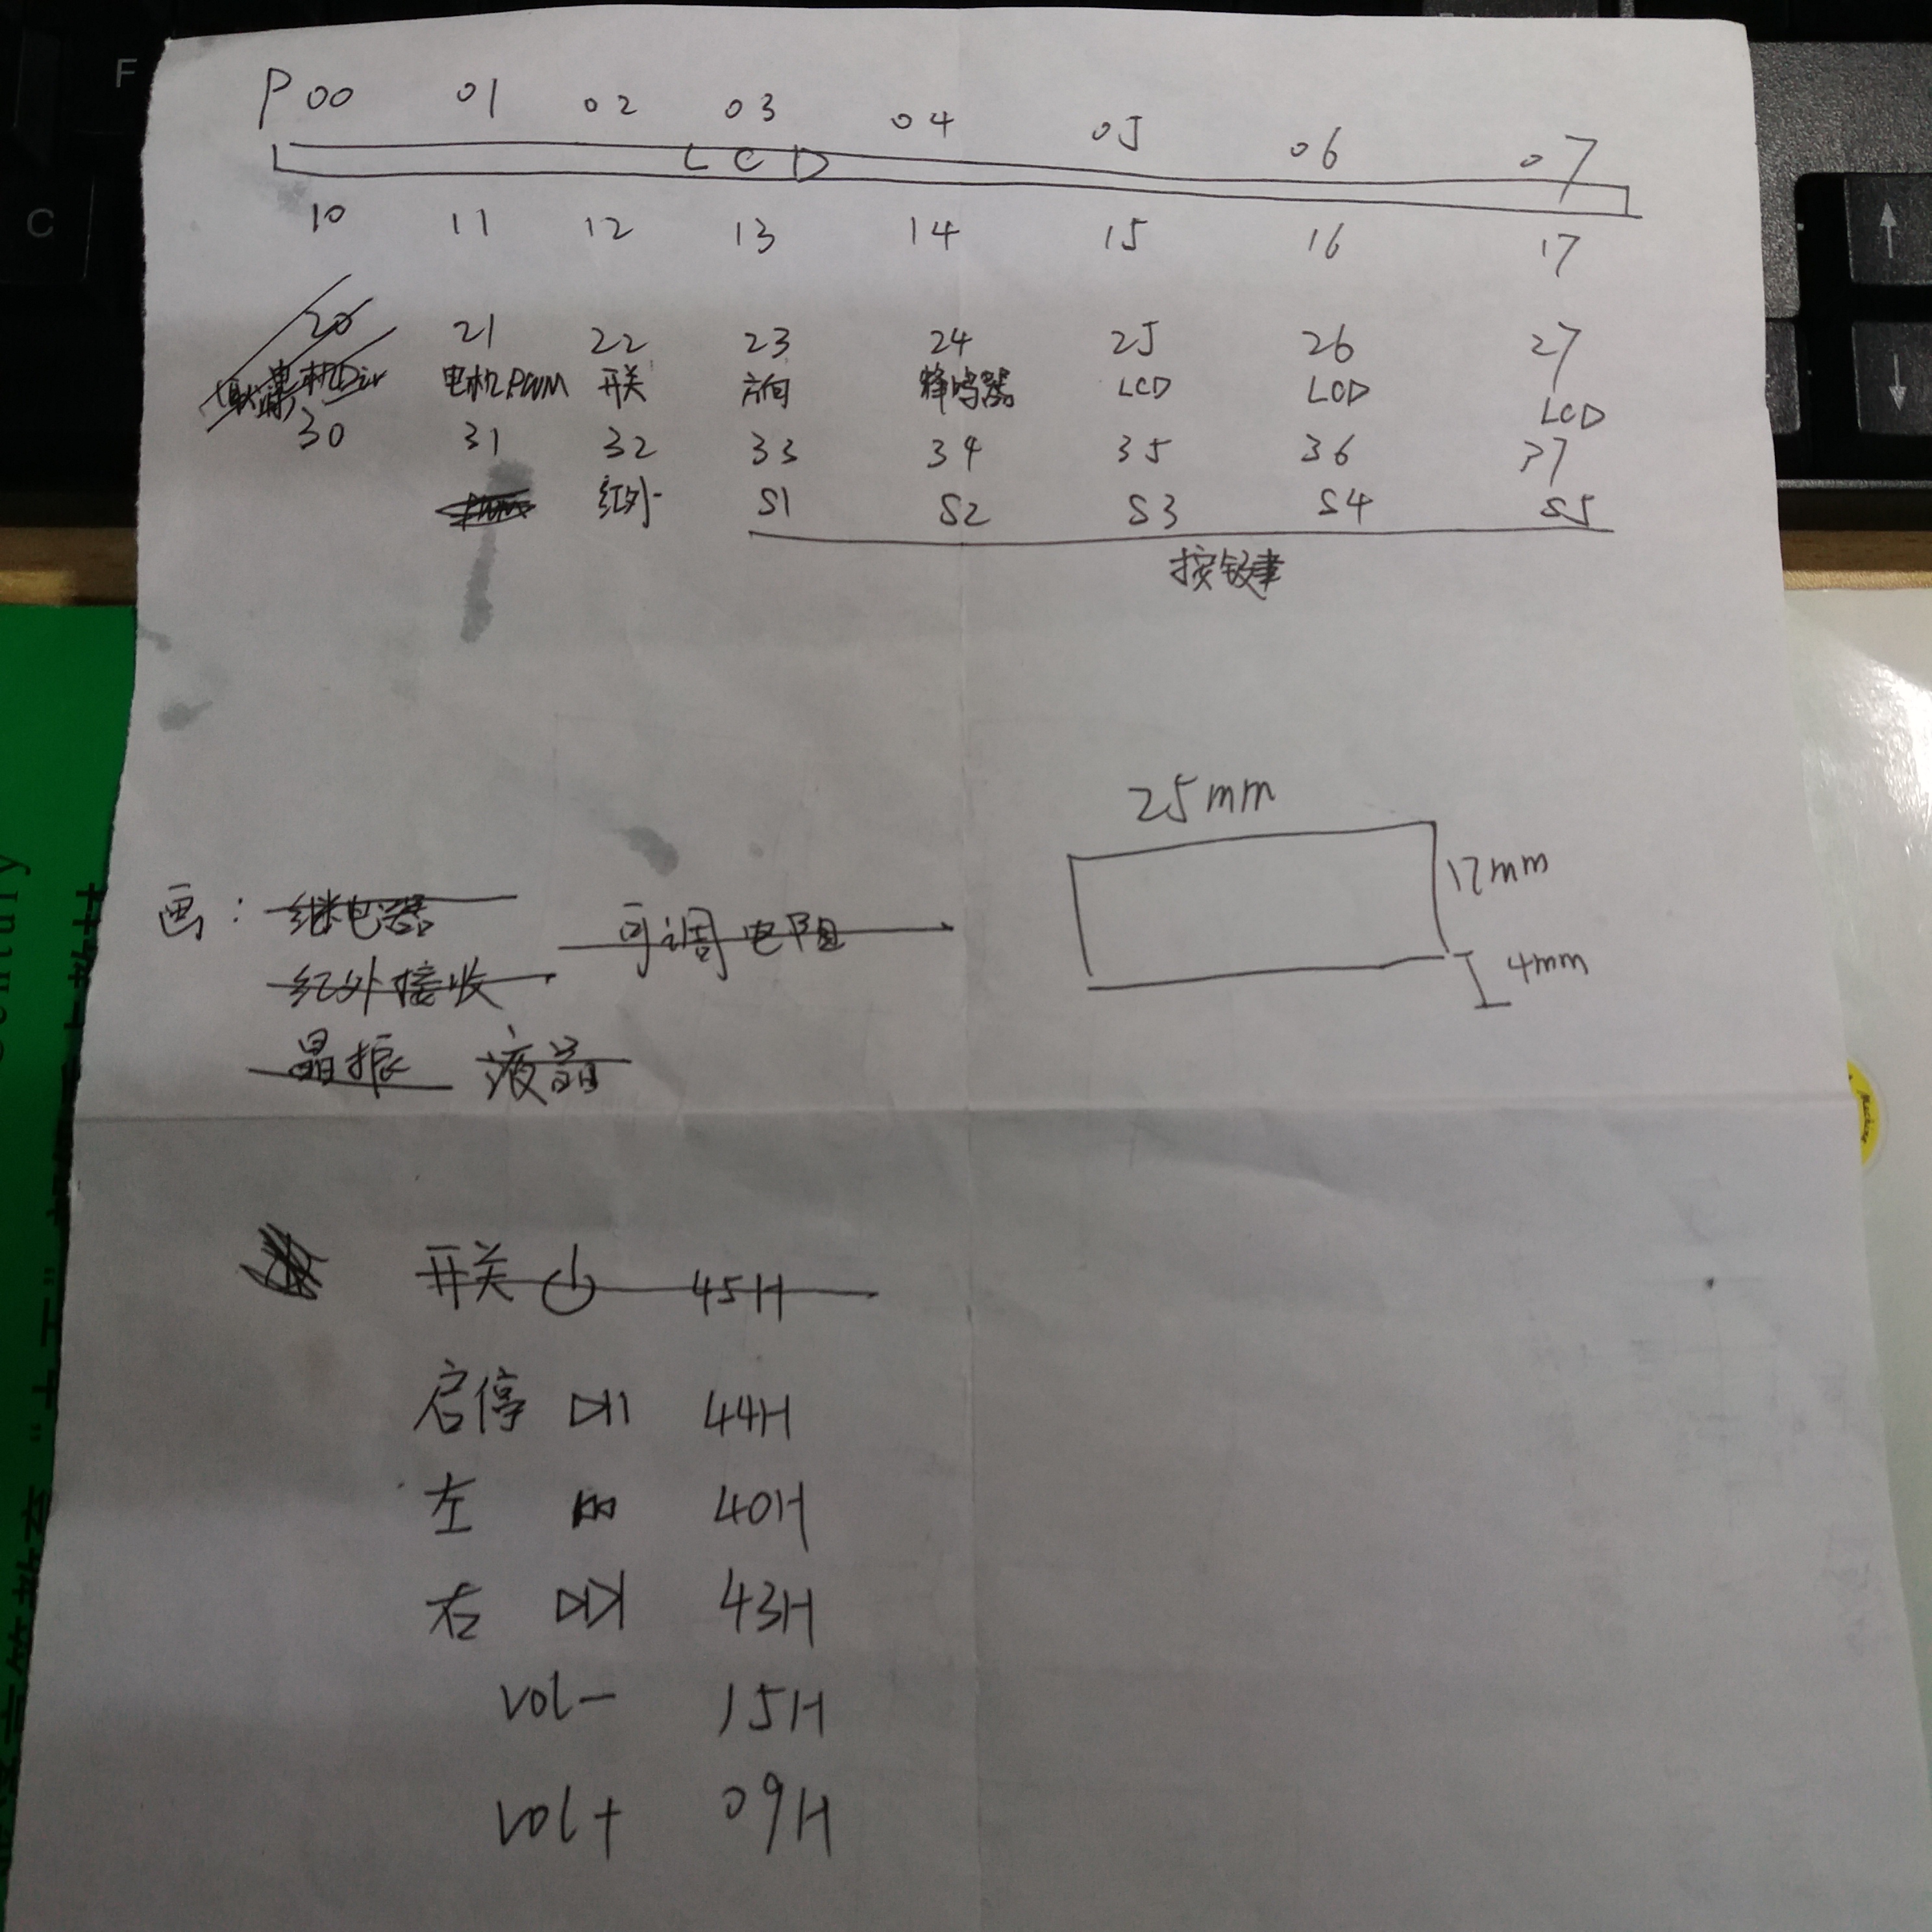 P 00 01 02 03 04 05 06 07
LCD
10 11 12 13 14 15 16 17
20 21 22 23 24 25 26 27
电机Dir 电机PWM 开关 方向 蜂鸣器 LCD LCD LCD
30 31 32 33 34 35 36 37
红外 S1 S2 S3 S4 S5
按键
25mm
17mm
4mm
画: 继电器 可调电阻
红外接收
晶振 液晶
开关 45H
启停 44H
左 40H
右 43H
vol- 15H
vol+ 09H
F
C
↑
↓